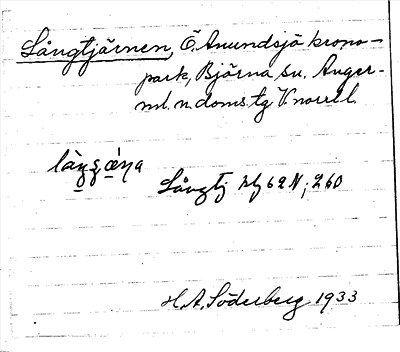 Långtjärnen, Ö. Anundsjö krono-
park, Björna sn. Ånger-
ml. n. doms. tg V. norrl.
Långtj 62 N; 260
H. A. Söderberg 1933